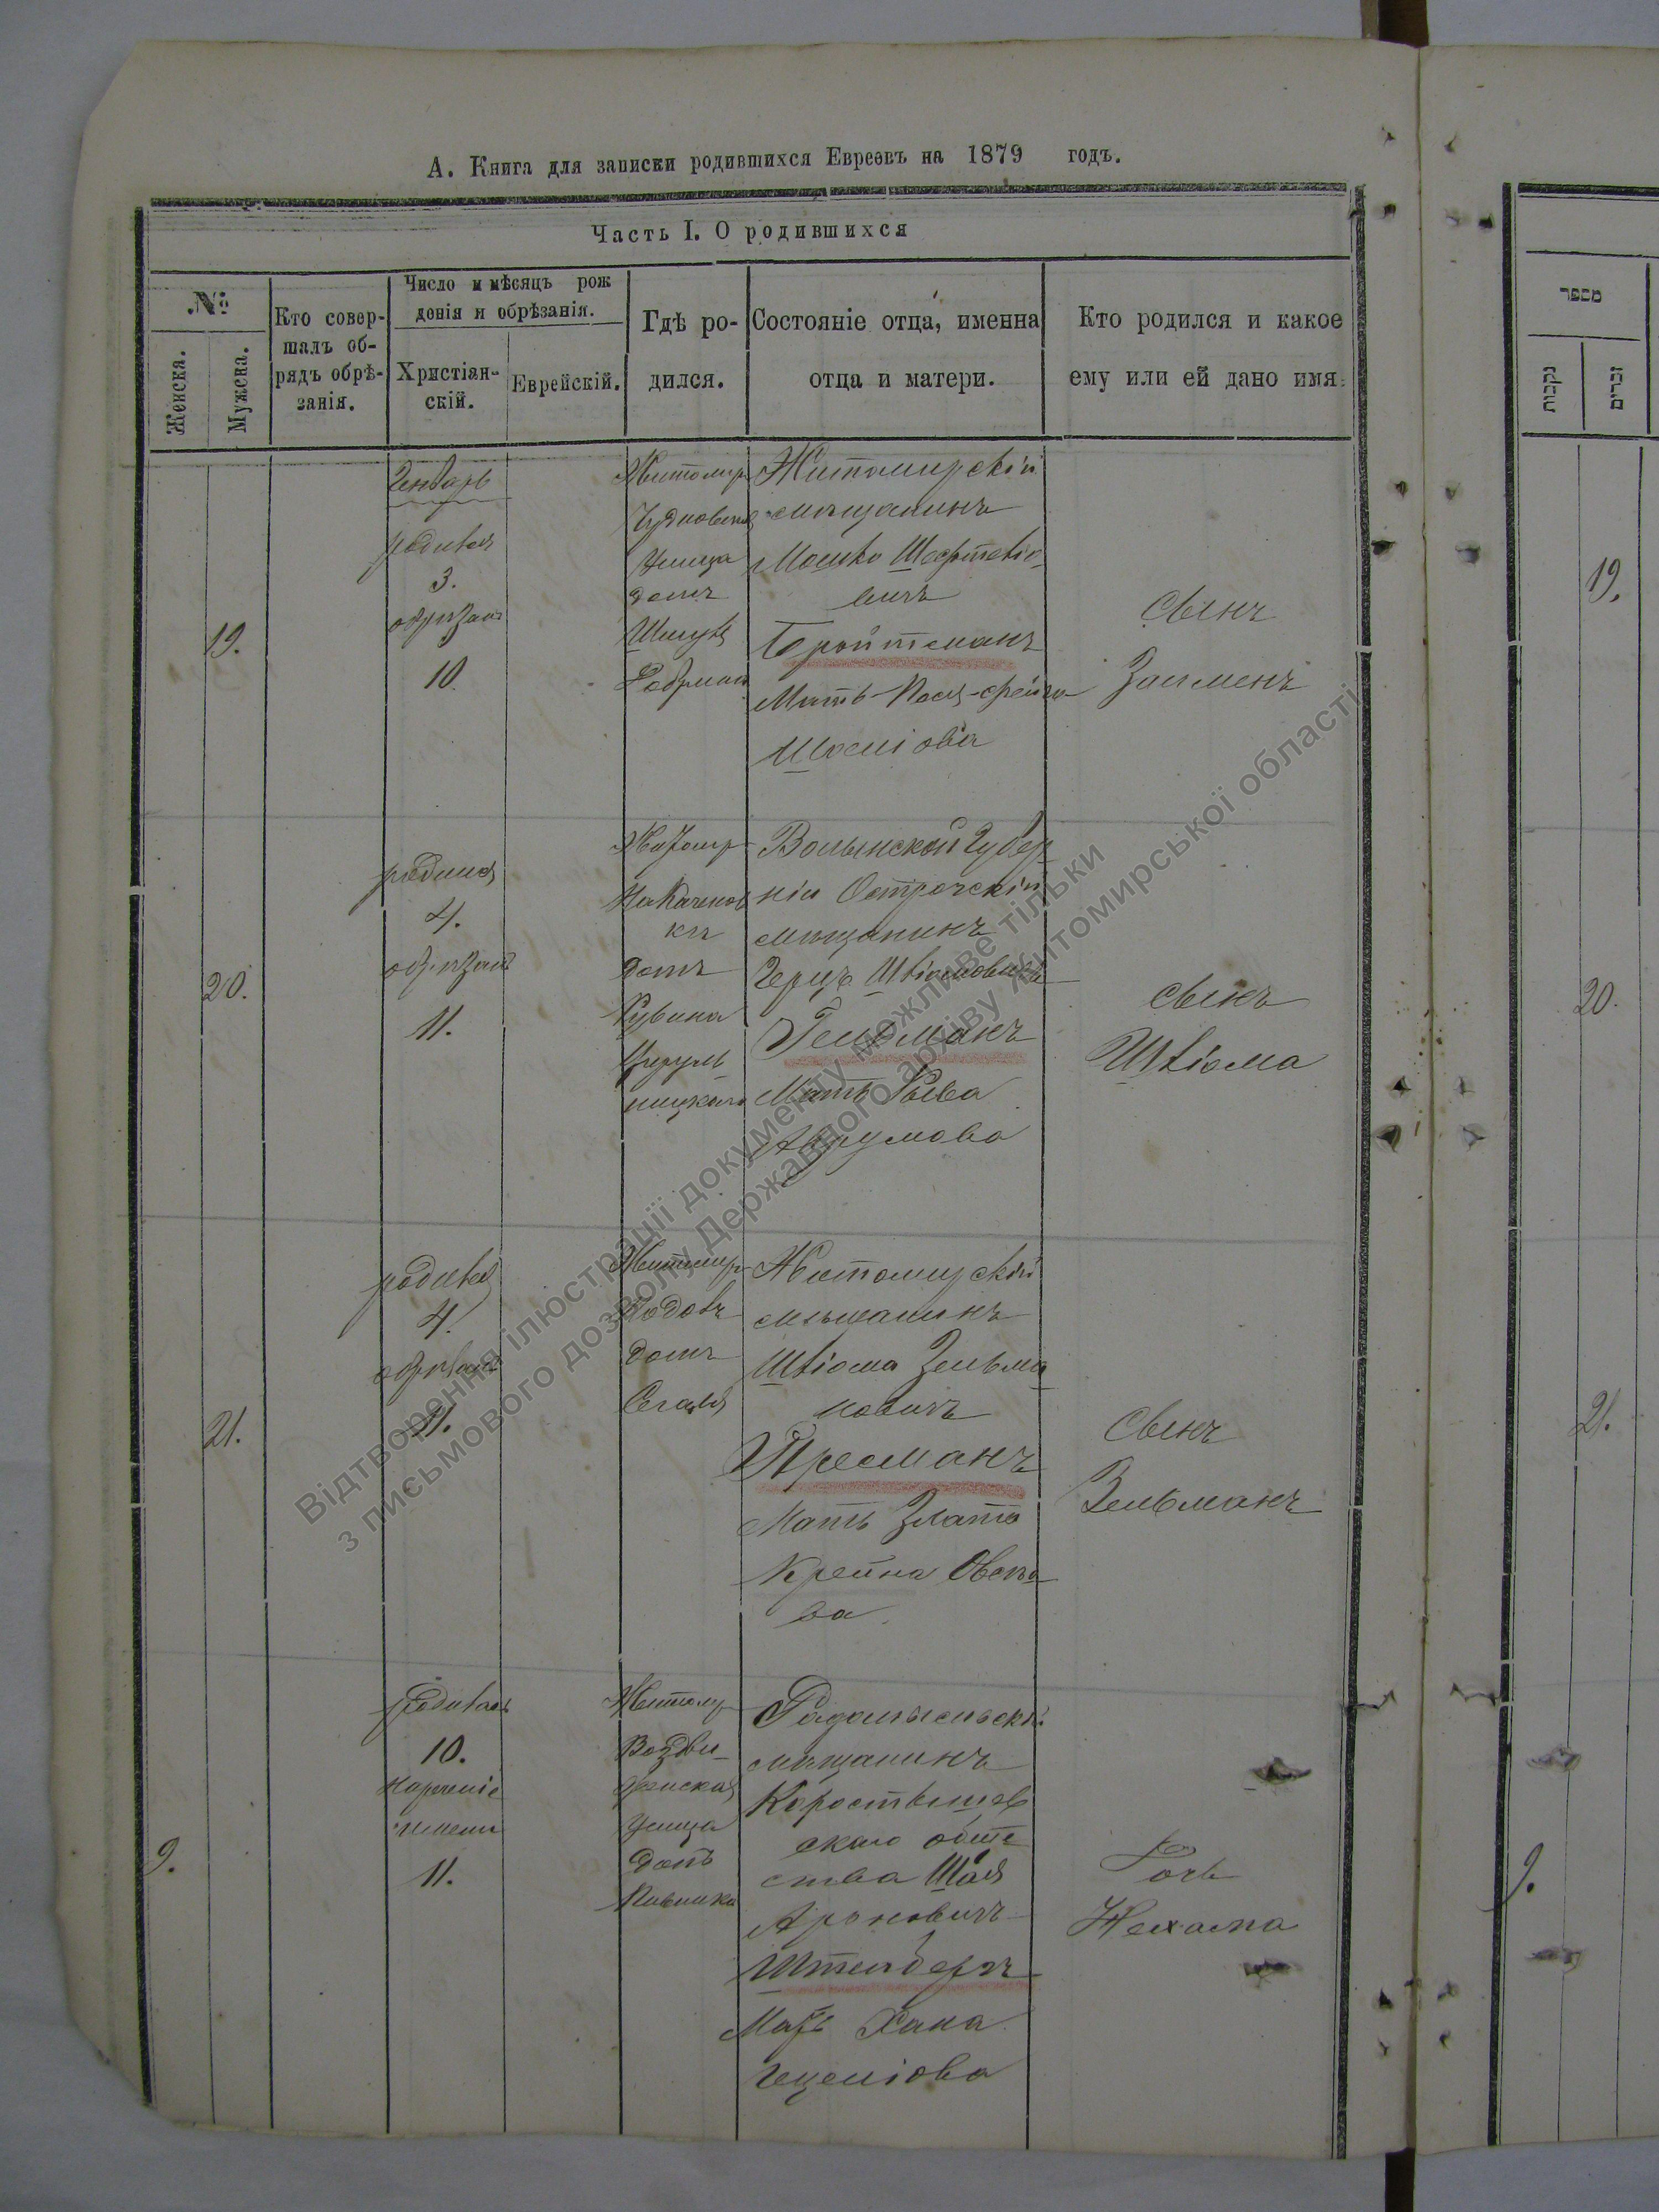 А. Книга для записки родившихся Евреевъ на 1879 годъ.
Часть I. О родившихся
№
Женска.
Мужска.
Кто совер-
шалъ об-
рядъ обрѣ-
занія.
Число и мѣсяцъ рож
денія и обрѣзанія.
Христіан-
скій.
Еврейскій.
Гдѣ ро-
дился.
Состояніе отца, именна
отца и матери.
Кто родился и какое
ему или ей дано имя.
מספר
נקבות
זכרים
19.
Генварь
родился
3.
обрѣзанъ
10.
Житомир
Чудновская
улица
домъ
Житомирскій
мѣщанинъ
Мошко
вичъ
Бройтманъ
Мать Песя-Фейга
сынъ
Зейменъ
19.
20.
родился
4.
обрѣзанъ
11.
Житомр
домъ
Рувина
Волынской Губер
ніи Острогскій
мѣщанинъ
Герцъ Шліомовичъ
Гельманъ
Мать Рыва
Аврумова
сынъ
Шліома
20.
21.
родился
4.
обрѣзанъ
11.
Житомир
домъ
Сегаля
Житомирскій
мѣщанинъ
Шліома Зельма
новичъ
Пресманъ
Мать Злата
Крейна Овсѣе
ва
сынъ
Зельманъ
21.
9.
родилась
10.
нареченіе
имени
11.
Житомр
Воздви
женская
улица
домъ
Радомысльскій
мѣщанинъ
Коростышев
скаго обще
ства Шая
Ароновичъ
Штелбергъ
Мать Хана
Гецеліова
Дочь
Нехама
9.
Відтворення ілюстрації документу можливе тільки
з письмового дозволу Державного архіву Житомирської області